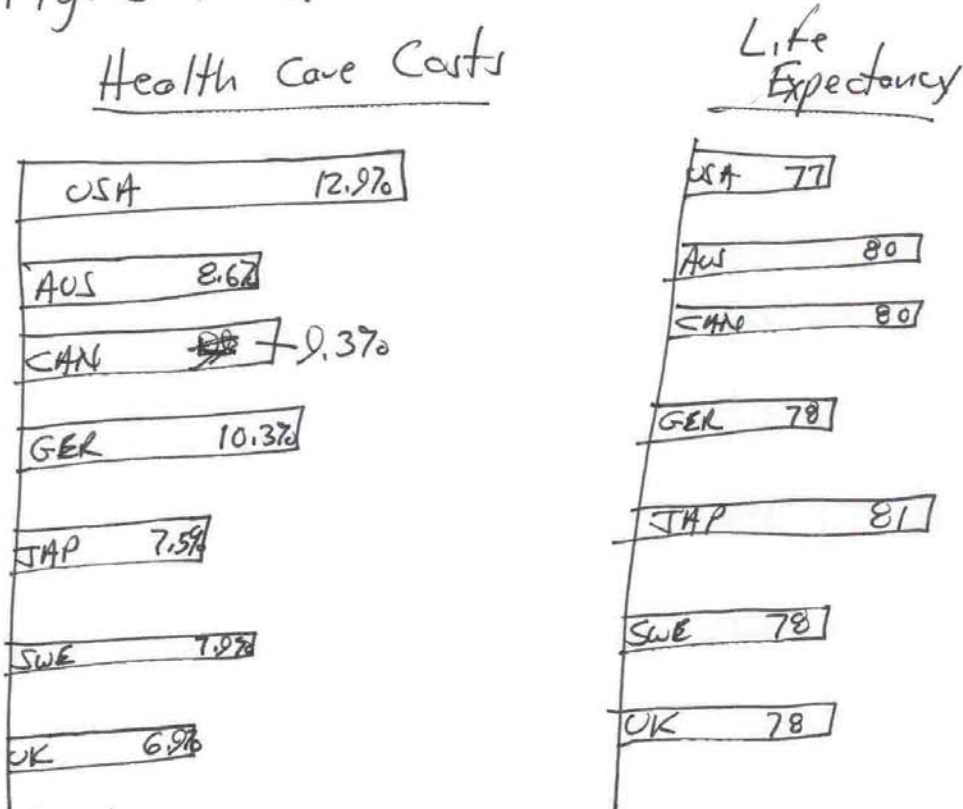 Health Care Costs
USA 12.9%
AUS 8.6%
CAN 9.3%
GER 10.3%
JAP 7.5%
SWE 7.9%
UK 6.9%
Life
Expectancy
USA 77
AUS 80
CAN 80
GER 78
JAP 81
SWE 78
UK 78